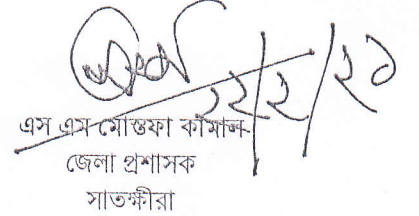 ২২/২/২১
এস এম মোস্তফা কামাল
জেলা প্রশাসক
সাতক্ষীরা